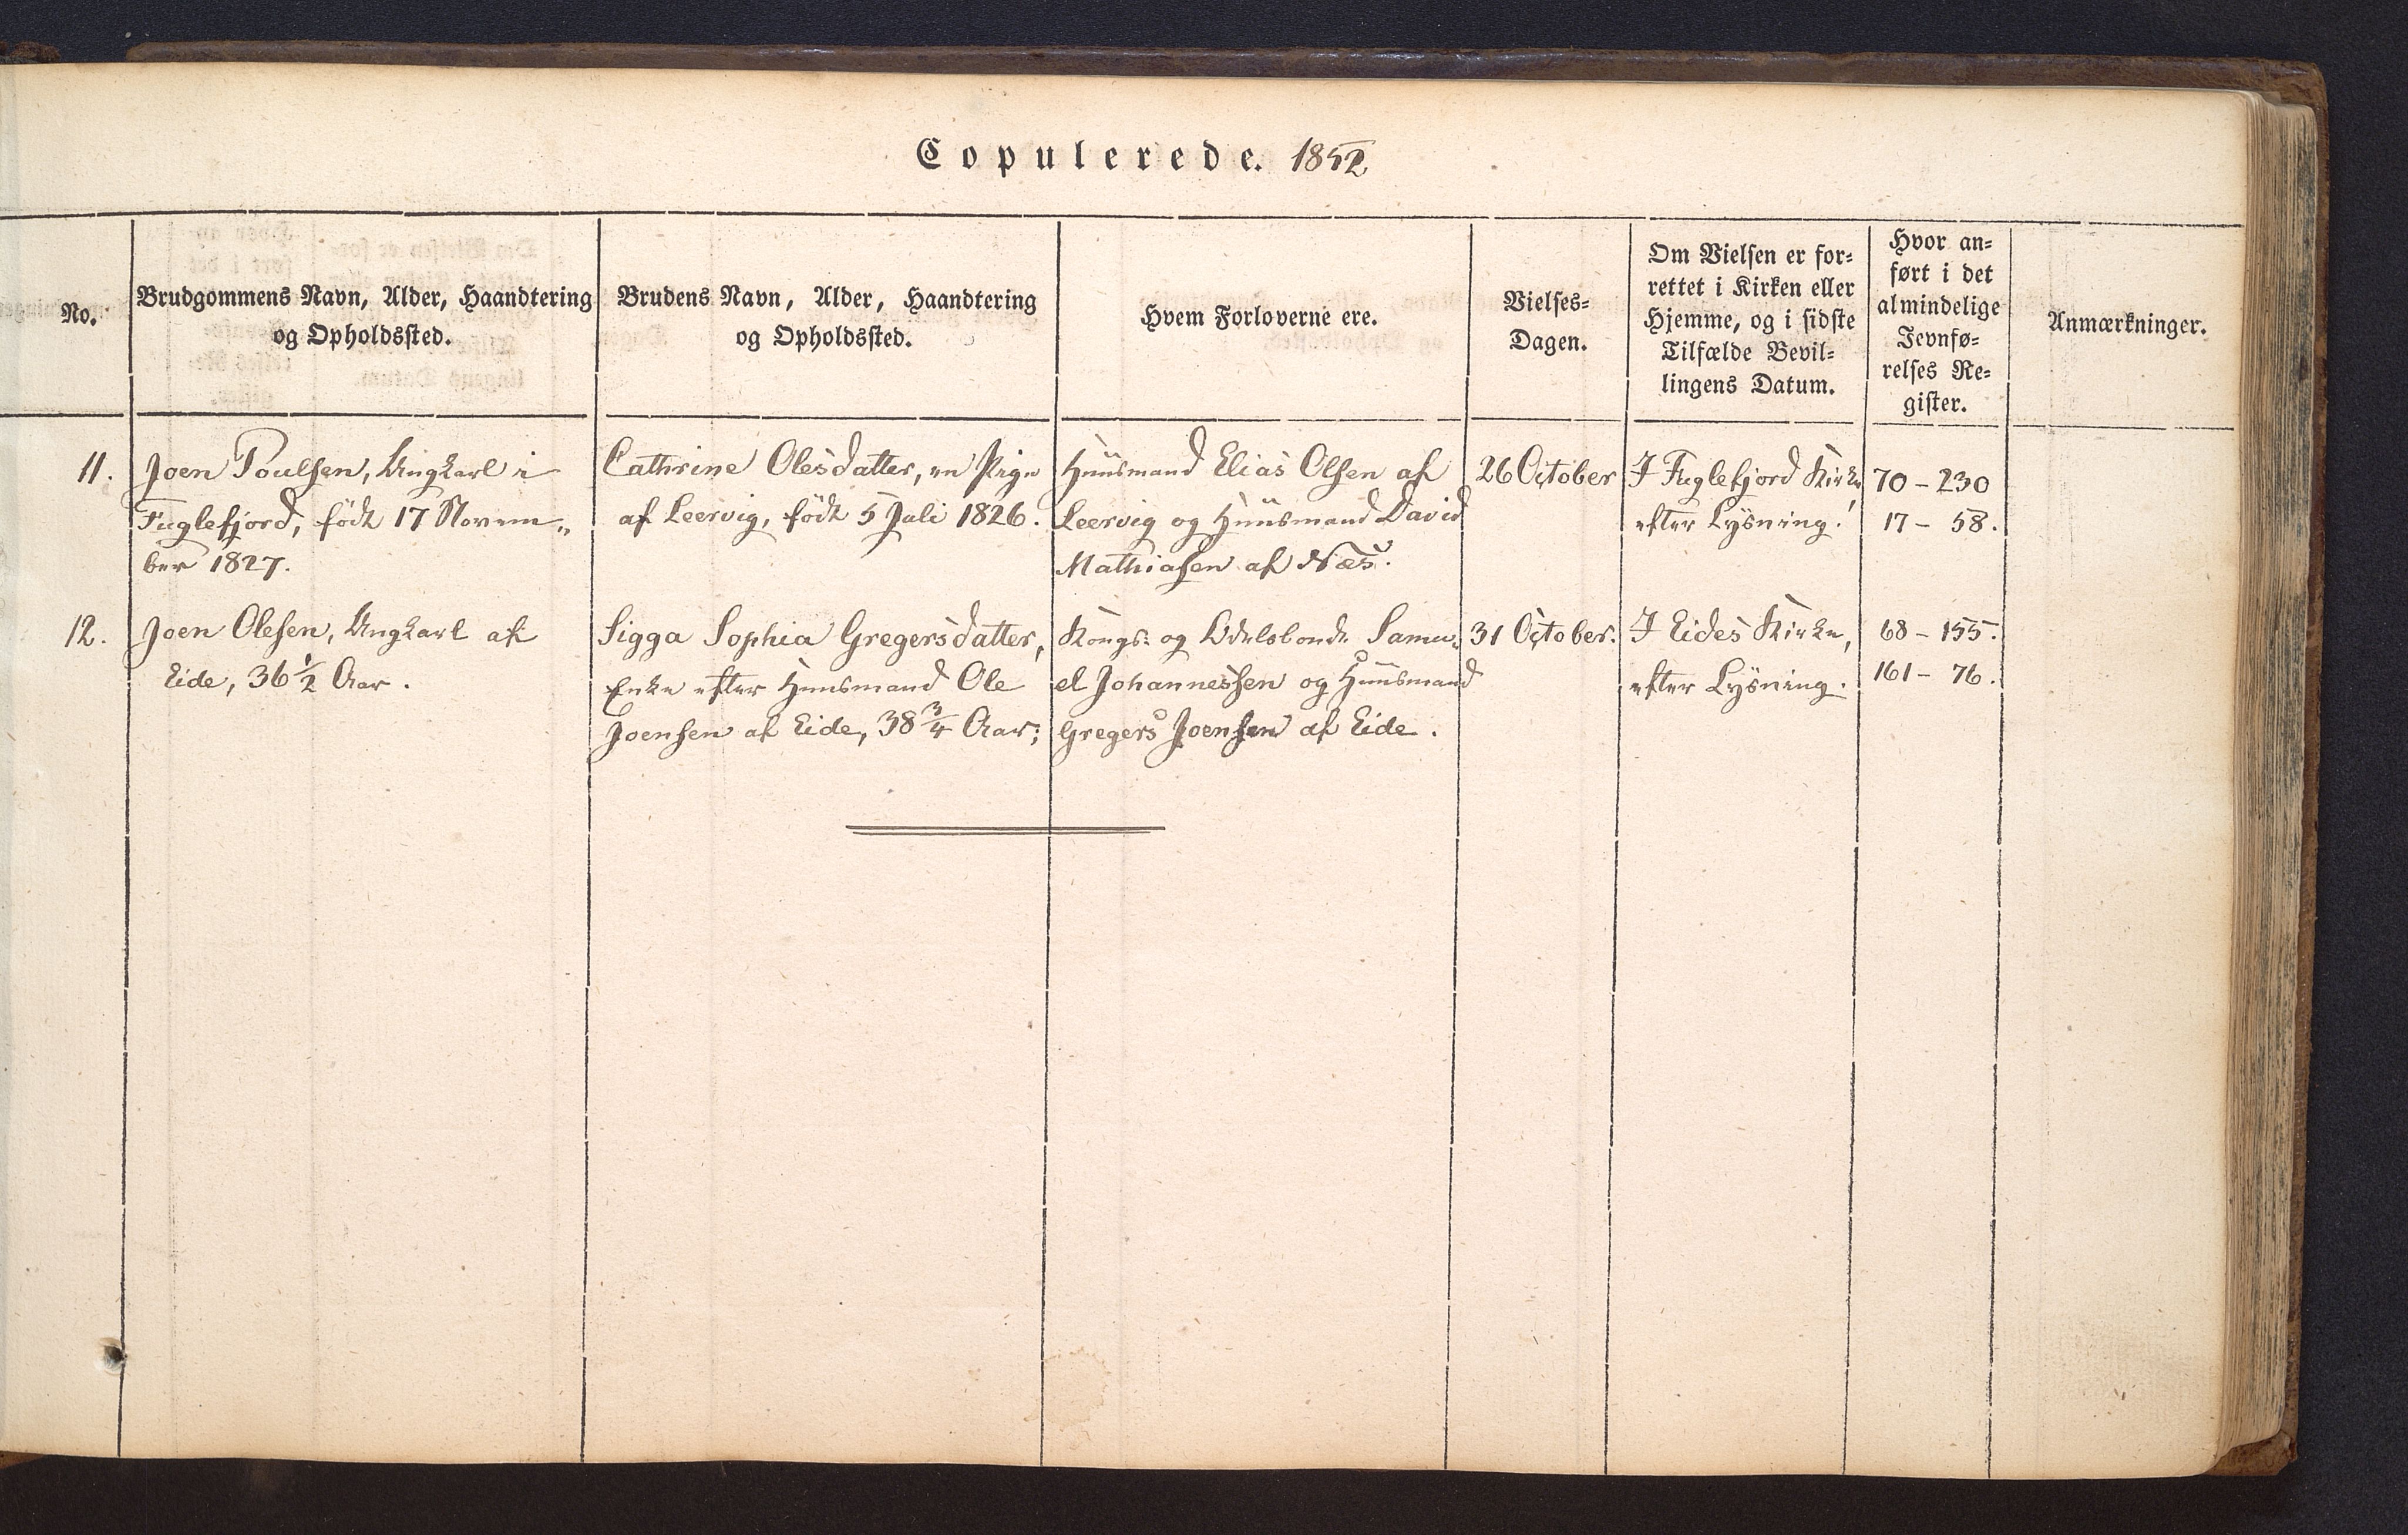 Copulerede. 1852
No.
Brudgommens Navn, Alder, Haandtering
og Opholdssted.
Brudens Navn, Alder, Haandtering
og Opholdssted.
Hvem Forloverne ere.
Vielses-
Dagen.
Om Vielsen er for-
rettet i Kirken eller
Hjemme, og i sidste
Tilfælde Bevil-
lingens Datum.
Hvor an-
ført i det
almindelige
Jevnfø-
relses Re-
gister.
Anmærkninger.
11.
Joen Poulsen, Ungkarl i
Fuglefjord, födt 17 Novem-
ber 1827.
Cathrine Olesdatter, en Pige
af Leervig, födt 5 Juli 1826.
Huusmand Elias Olsen af
Leervig og Huusmand David
Mathiasen af Næs.
26 October
I Fuglefjord Kirke
efter Lysning.
70 - 230
17 - 58.
12.
Joen Olesen, Ungkarl af
Eide, 36 1/2 Aar.
Sigga Sophia Gregersdatter,
Enke efter Huusmand Ole
Joensen af Eide, 38 3/4 Aar;
Kongs- og Odelsbonde Samu-
el Johannessen og Huusmand
Gregers Joensen af Eide.
31 October.
I Eides Kirke,
efter Lysning.
68 - 155.
161 - 76.